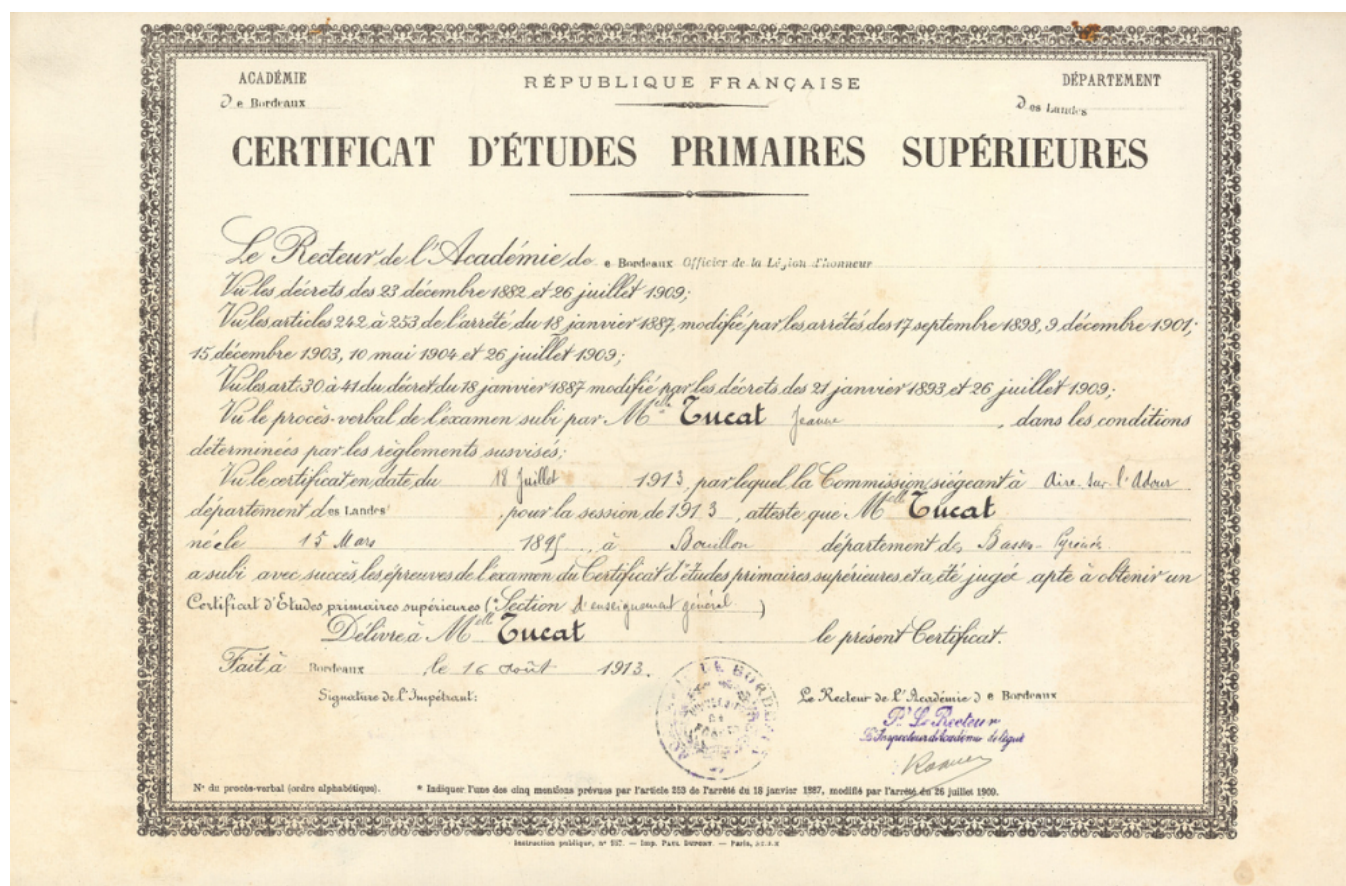 ACADÉMIE
De Bordeaux
RÉPUBLIQUE FRANÇAISE
DÉPARTEMENT
Des Landes
CERTIFICAT D'ÉTUDES PRIMAIRES SUPÉRIEURES
Le Recteur de l'Académie de e Bordeaux Officier de la Légion d'honneur
Vu les décrets des 23 décembre 1882 et 26 juillet 1909;
Vu les articles 242 à 253 de l'arrêté du 18 janvier 1887, modifié par les arrêtés des 17 septembre 1898, 9 décembre 1901;
15 décembre 1903, 10 mai 1904 et 26 juillet 1909;
Vu les art. 30 à 41 du décret du 18 janvier 1887 modifié par les décrets des 21 janvier 1893 et 26 juillet 1909;
Vu le procès-verbal de l'examen subi par Melle Tucat Jeanne, dans les conditions
déterminées par les règlements susvisés;
Vu le certificat en date du 18 Juillet 1913, par lequel la Commission siégeant à Aire-sur-l'Adour
département des Landes, pour la session de 1913, atteste que Mell Tucat
née le 15 Mars 1895, à Bouillon département des Basses-Pyrénées
a subi avec succès les épreuves de l'examen du Certificat d'études primaires supérieures et a été jugée apte à obtenir un
Certificat d'Etudes primaires supérieures (*Section d'enseignement général)
Délivre à Mell Tucat le présent Certificat.
Fait à Bordeaux, le 16 août 1913.
Signature de l'Impétrant:
Le Recteur de l'Académie de Bordeaux
Pr Le Recteur
L'Inspecteur d'Académie délégué
DE BORDEAUX
N° du procès-verbal (ordre alphabétique).
* Indiquer l'une des cinq mentions prévues par l'article 253 de l'arrêté du 18 janvier 1887, modifié par l'arrêté du 26 juillet 1909.
Instruction publique, n° 287. — Imp. PAUL DUPONT. — Paris,